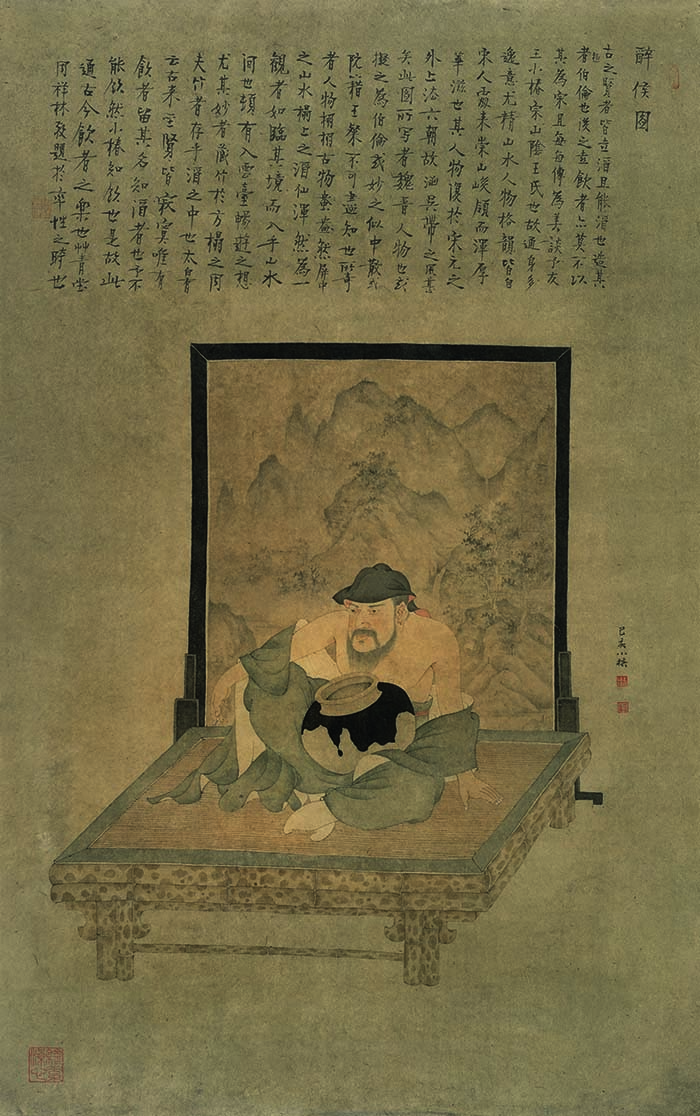 醉侯圖
古之賢者皆立酒且能酒世造其
者伯倫也後之立飲者亦莫不以
其為宗且每每傳為美談予友
王小椿宋山陰王氏世故通身多
逸意尤精山水人物格韻皆自
宋人處来崇山峻嶺而渾厚
華滋世其人物復於宋元之
外上溢六朝故涵吳帶之風其
矣此圖所写者魏晉人物也或
擬之為伯倫或妙之似中散或
阮籍王粲不可盡知世所奇
者人物栩栩古物盎然屏中
之山水榻上之酒仙渾然為一
觀者如臨其境而入乎山水
间世頓有入雲臺暢遊之想
尤其妙者藏竹於方榻之间
夫竹者存乎酒之中世太白有
云古来聖賢皆寂寞唯有
飲者留其名知酒者也予不
能飲然小椿知飲世是故此
通古今飲者之樂世艸青堂
阿祥林題於率性之時世
己亥小椿